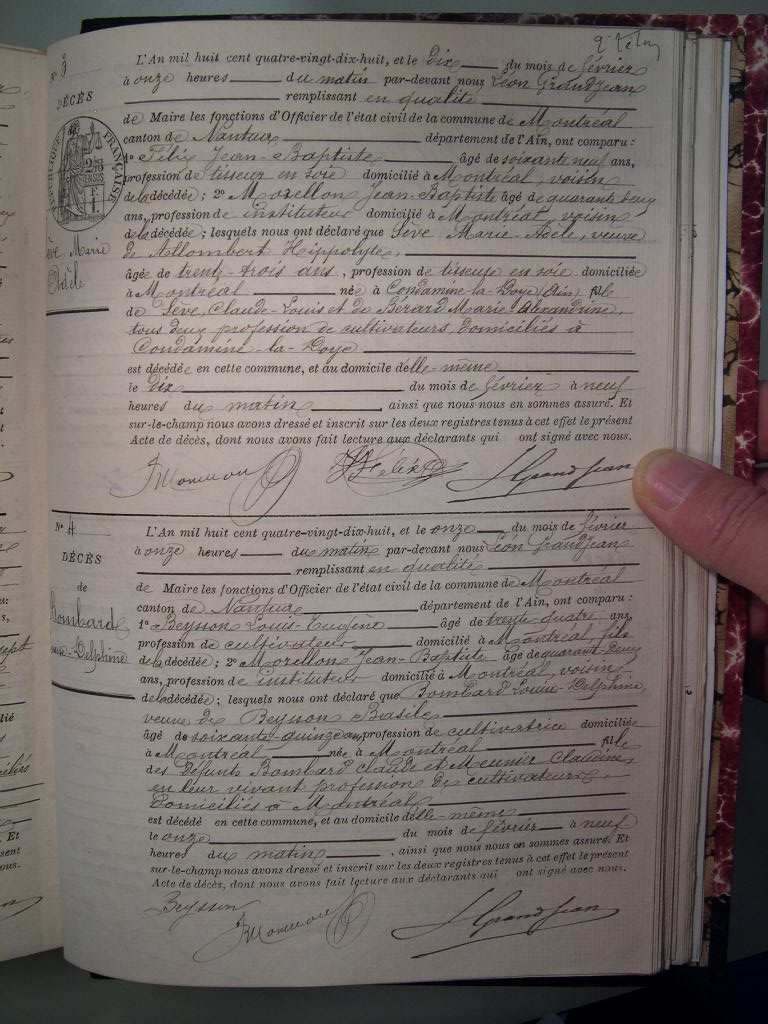 N° 3
DÉCÈS
RÉPUBLIQUE FRANÇAISE
Sève Marie
Adèle
L'An mil huit cent quatre-vingt-dix-huit, et le dix du mois de février
à onze heures du matin par-devant nous Léon Grandjean
remplissant en qualité
de Maire les fonctions d'Officier de l'état civil de la commune de Montréal
canton de Nantua département de l'Ain, ont comparu :
1° Félix Jean-Baptiste âgé de soixante neuf ans,
profession de tisseur en soie domicilié à Montréal, voisin
de la décédée ; 2° Morellon Jean-Baptiste âgé de quarante deux
ans, profession de instituteur domicilié à Montréal, voisin
de la décédée ; lesquels nous ont déclaré que Sève Marie-Adèle, veuve
de Allombert Hippolyte,
âgée de trente-trois ans, profession de tisseuse en soie domiciliée
à Montréal née à Condamine-la-Doye (Ain) fille
de Sève, Claude-Louis et de Bérard Marie Alexandrine,
tous deux profession de cultivateurs, domiciliés à
Condamine-la-Doye
est décédée en cette commune, et au domicile d'elle-même
le dix du mois de février à neuf
heures du matin, ainsi que nous nous en sommes assuré. Et
sur-le-champ nous avons dressé et inscrit sur les deux registres tenus à cet effet le présent
Acte de décès, dont nous avons fait lecture aux déclarants qui ont signé avec nous.
JMorellon Félix L Grandjean
N° 4
DÉCÈS
de
Bombard
Louise-Delphine
L'An mil huit cent quatre-vingt-dix-huit, et le onze du mois de février
à onze heures du matin par-devant nous Léon Grandjean
remplissant en qualité
de Maire les fonctions d'Officier de l'état civil de la commune de Montréal
canton de Nantua département de l'Ain, ont comparu :
1° Beysson Louis-Eugène âgé de trente quatre ans,
profession de cultivateur domicilié à Montréal, fils
de la décédée ; 2° Morellon Jean-Baptiste âgé de quarante-deux
ans, profession de instituteur domicilié à Montréal, voisin
de la décédée ; lesquels nous ont déclaré que Bombard Louise-Delphine,
veuve de Beysson Basile
âgé de soixante-quinze ans, profession de cultivatrice domiciliée
à Montréal née à Montréal fille
des défunts Bombard Claude et Meunier Claudine,
en leur vivant profession de cultivateurs,
domiciliés à Montréal
est décédé en cette commune, et au domicile d'elle-même
le onze du mois de février à neuf
heures du matin, ainsi que nous nous en sommes assuré. Et
sur-le-champ nous avons dressé et inscrit sur les deux registres tenus à cet effet le présent
Acte de décès, dont nous avons fait lecture aux déclarants qui ont signé avec nous.
Beysson JMorellon L Grandjean